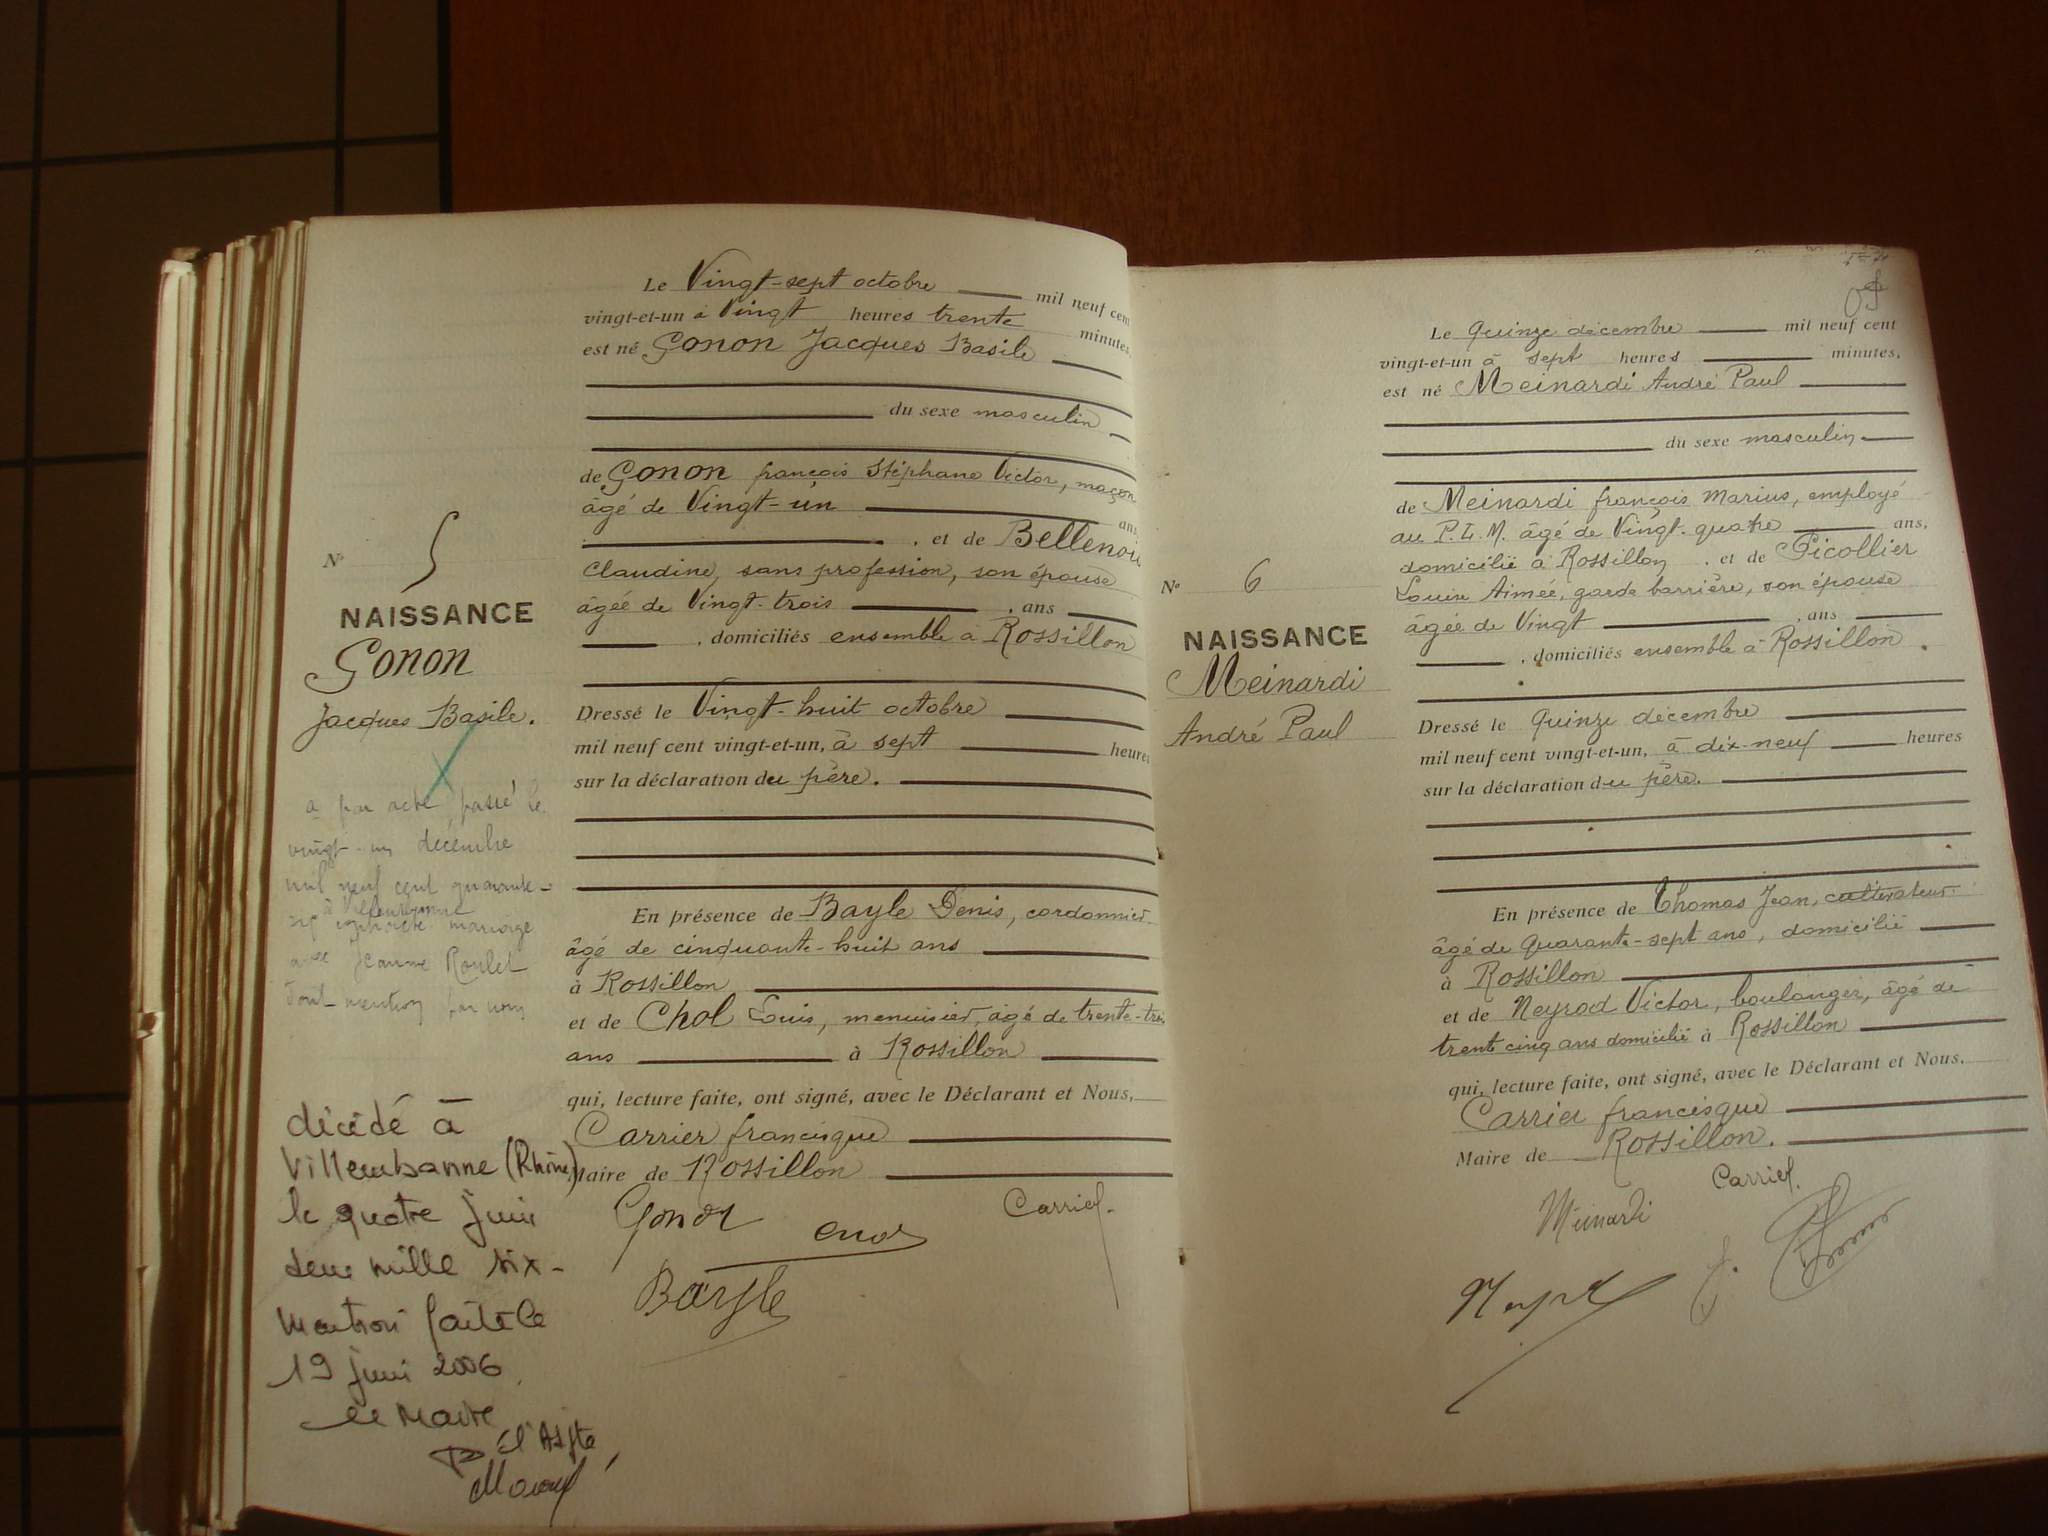 Le Vingt-sept octobre mil neuf cent
vingt-et-un à Vingt heures trente minutes,
est né Gonon Jacques Basile
du sexe masculin
de Gonon françois Stéphane Victor, maçon
âgé de Vingt-un ans
, et de Bellenoi
Claudine, sans profession, son épouse
âgée de Vingt-trois , ans
, domiciliés ensemble à Rossillon
N° 5
NAISSANCE
Gonon
Jacques Basile.
Dressé le Vingt-huit octobre
mil neuf cent vingt-et-un, à sept heures
sur la déclaration du père.
a par acte passé le
vingt-un décembre
mil neuf cent quarante-
à Villeurbanne
six contracté mariage
avec Jeanne Roulet
dont mention par nous
En présence de Bayle Denis, cordonnier
âgé de cinquante-huit ans
à Rossillon
et de Chol Louis, menuisier, âgé de trente-trois
ans à Rossillon
qui, lecture faite, ont signé, avec le Déclarant et Nous,
Carrier francisque
Maire de Rossillon
Gonon Carrier
Bayle
décédé à
Villeurbanne (Rhône)
le quatre juin
deux mille six-
Mention faite le
19 juin 2006
le Maire
Le quinze décembre mil neuf cent
vingt-et-un à sept heures minutes,
est né Meinardi André Paul
du sexe masculin
de Meinardi françois Marius, employé
au P.L.M. âgé de Vingt-quatre ans,
domicilié à Rossillon , et de Picollier
Louise Aimée, garde barrière, son épouse
âgée de Vingt , ans
, domiciliés ensemble à Rossillon
N° 6
NAISSANCE
Meinardi
André Paul
Dressé le quinze décembre
mil neuf cent vingt-et-un, à dix-neuf heures
sur la déclaration du père.
En présence de Thomas Jean, cultivateur
âgé de quarante-sept ans, domicilié
à Rossillon
et de Neyrod Victor, boulanger, âgé de
trente cinq ans domicilié à Rossillon
qui, lecture faite, ont signé, avec le Déclarant et Nous,
Carrier francisque
Maire de Rossillon.
Meinardi Carrier